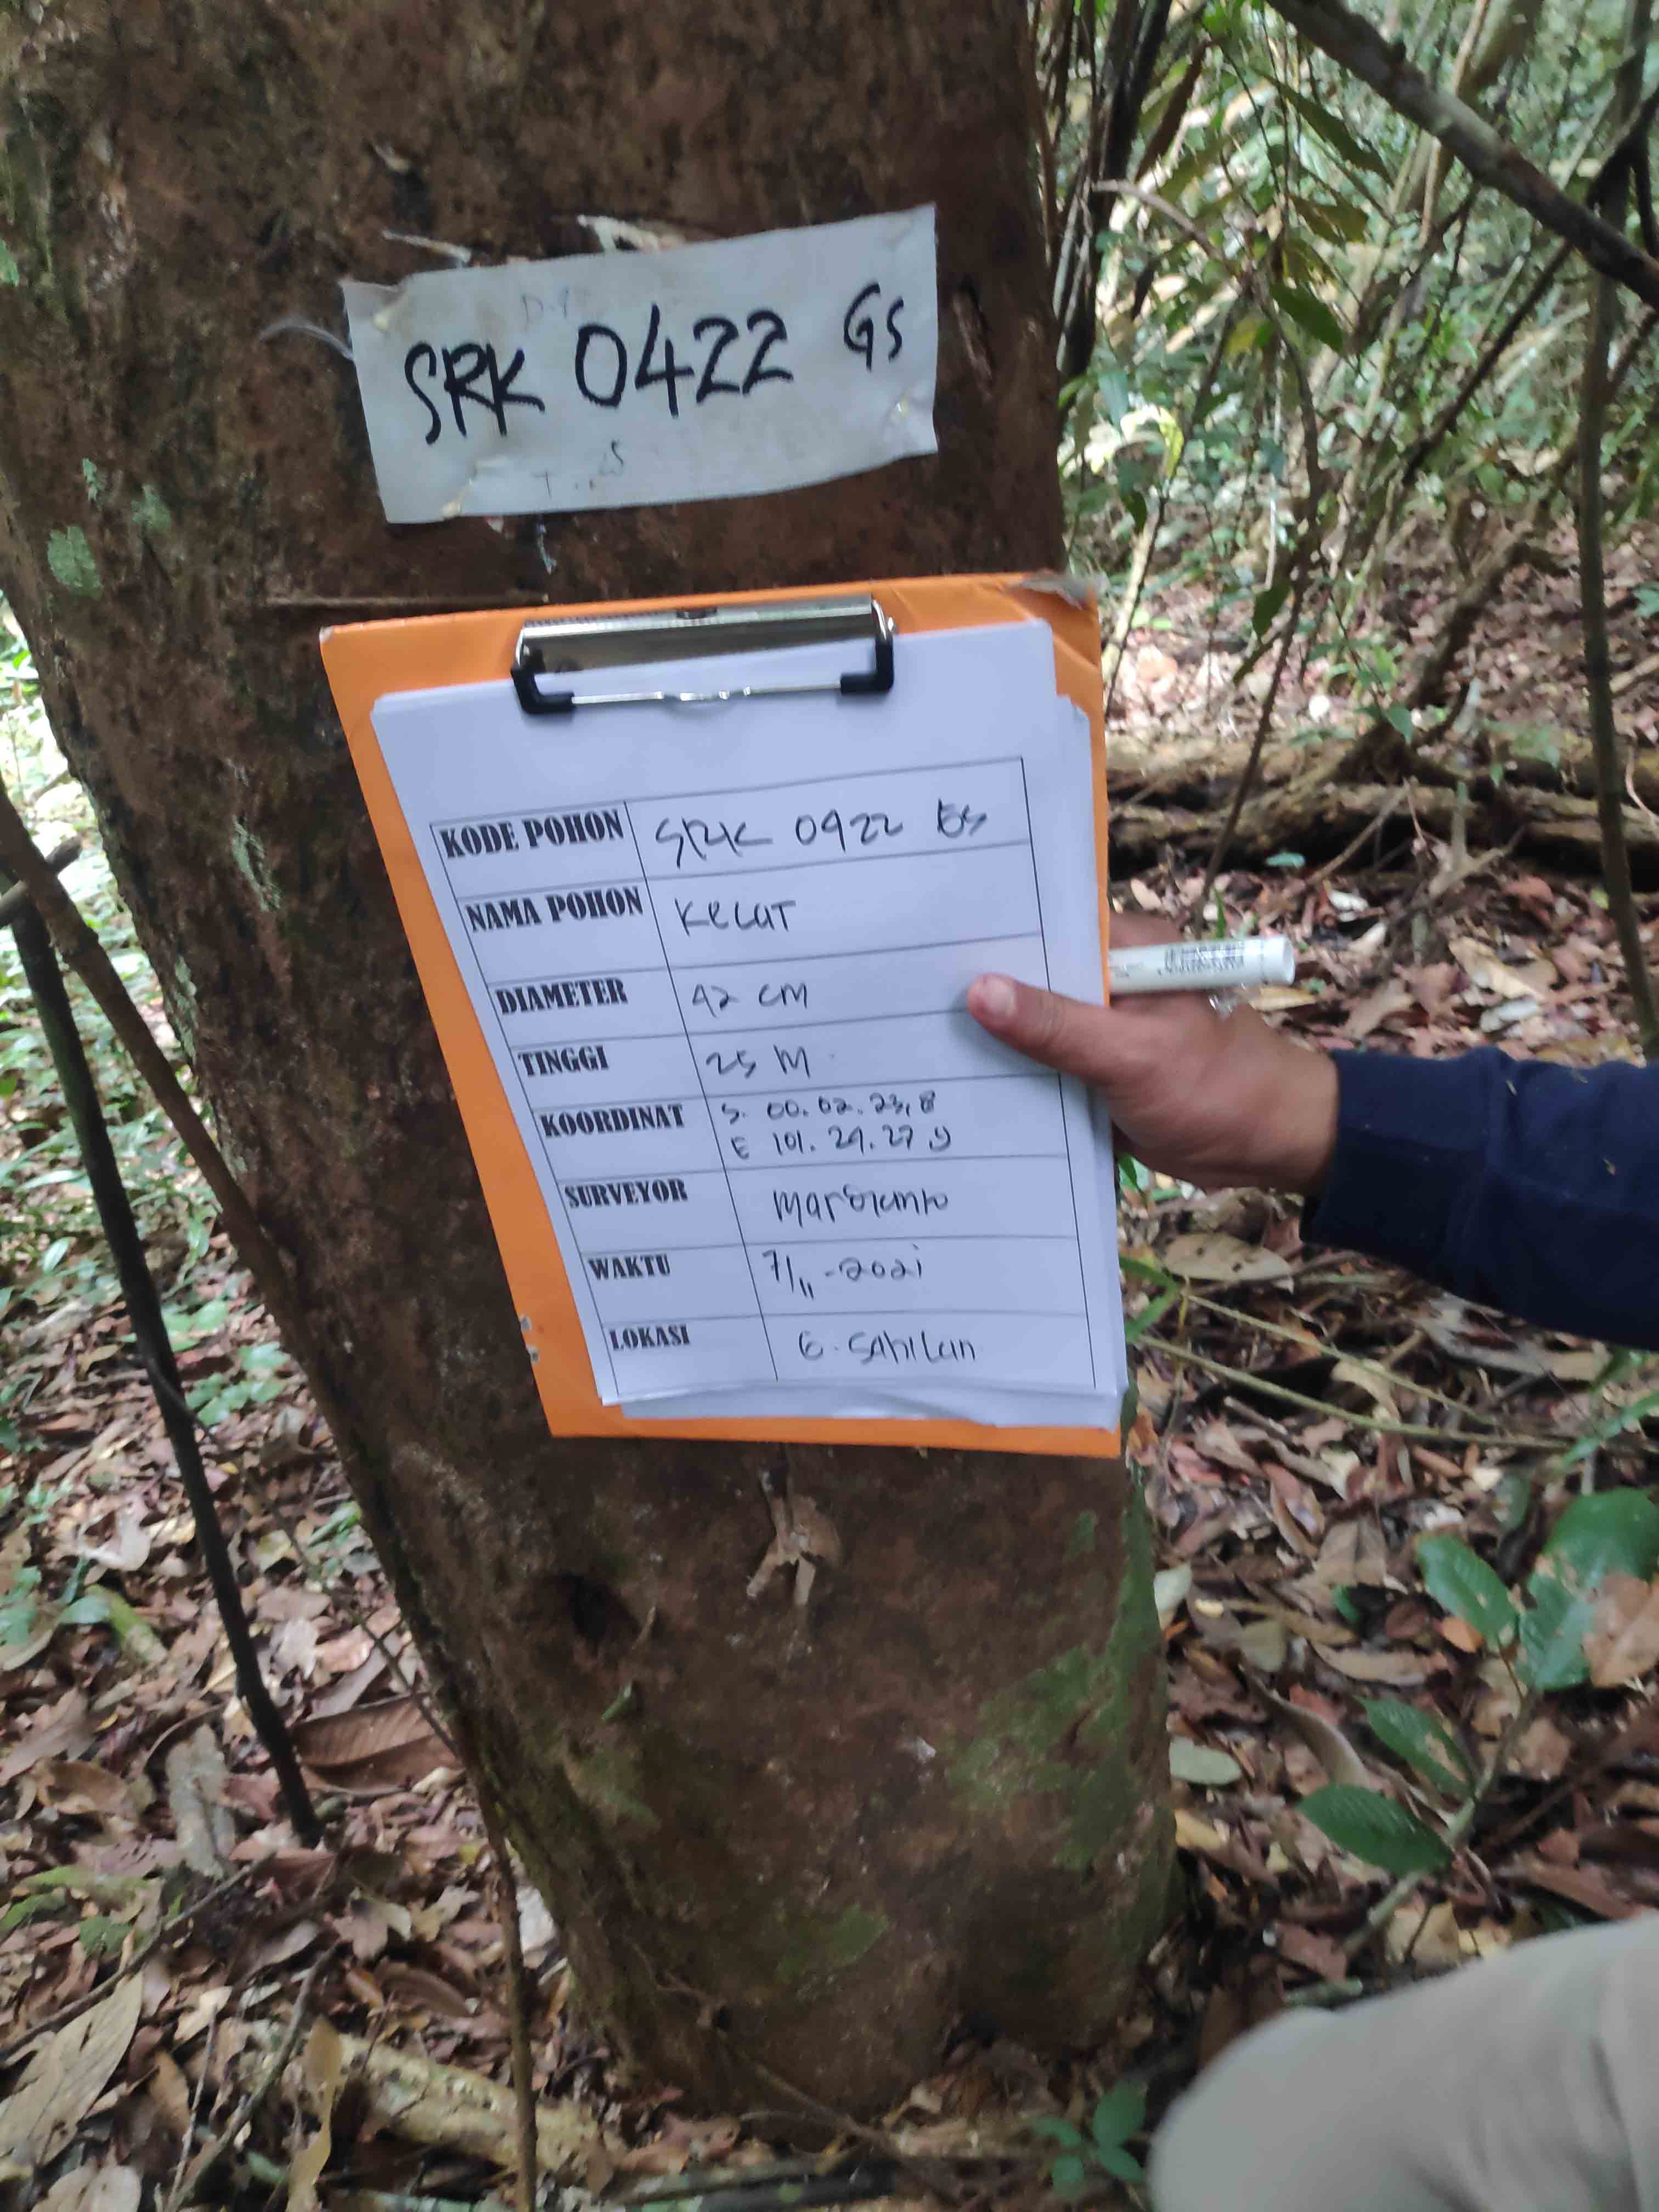 SRK 0422 GS
KODE POHON SRK 0422 GS
NAMA POHON Kelat
DIAMETER 42 CM
TINGGI 25 M
KOORDINAT S. 00. 02. 23,8
E 101. 29. 27 9
SURVEYOR
WAKTU 7/11-2021
LOKASI G. Sahilan